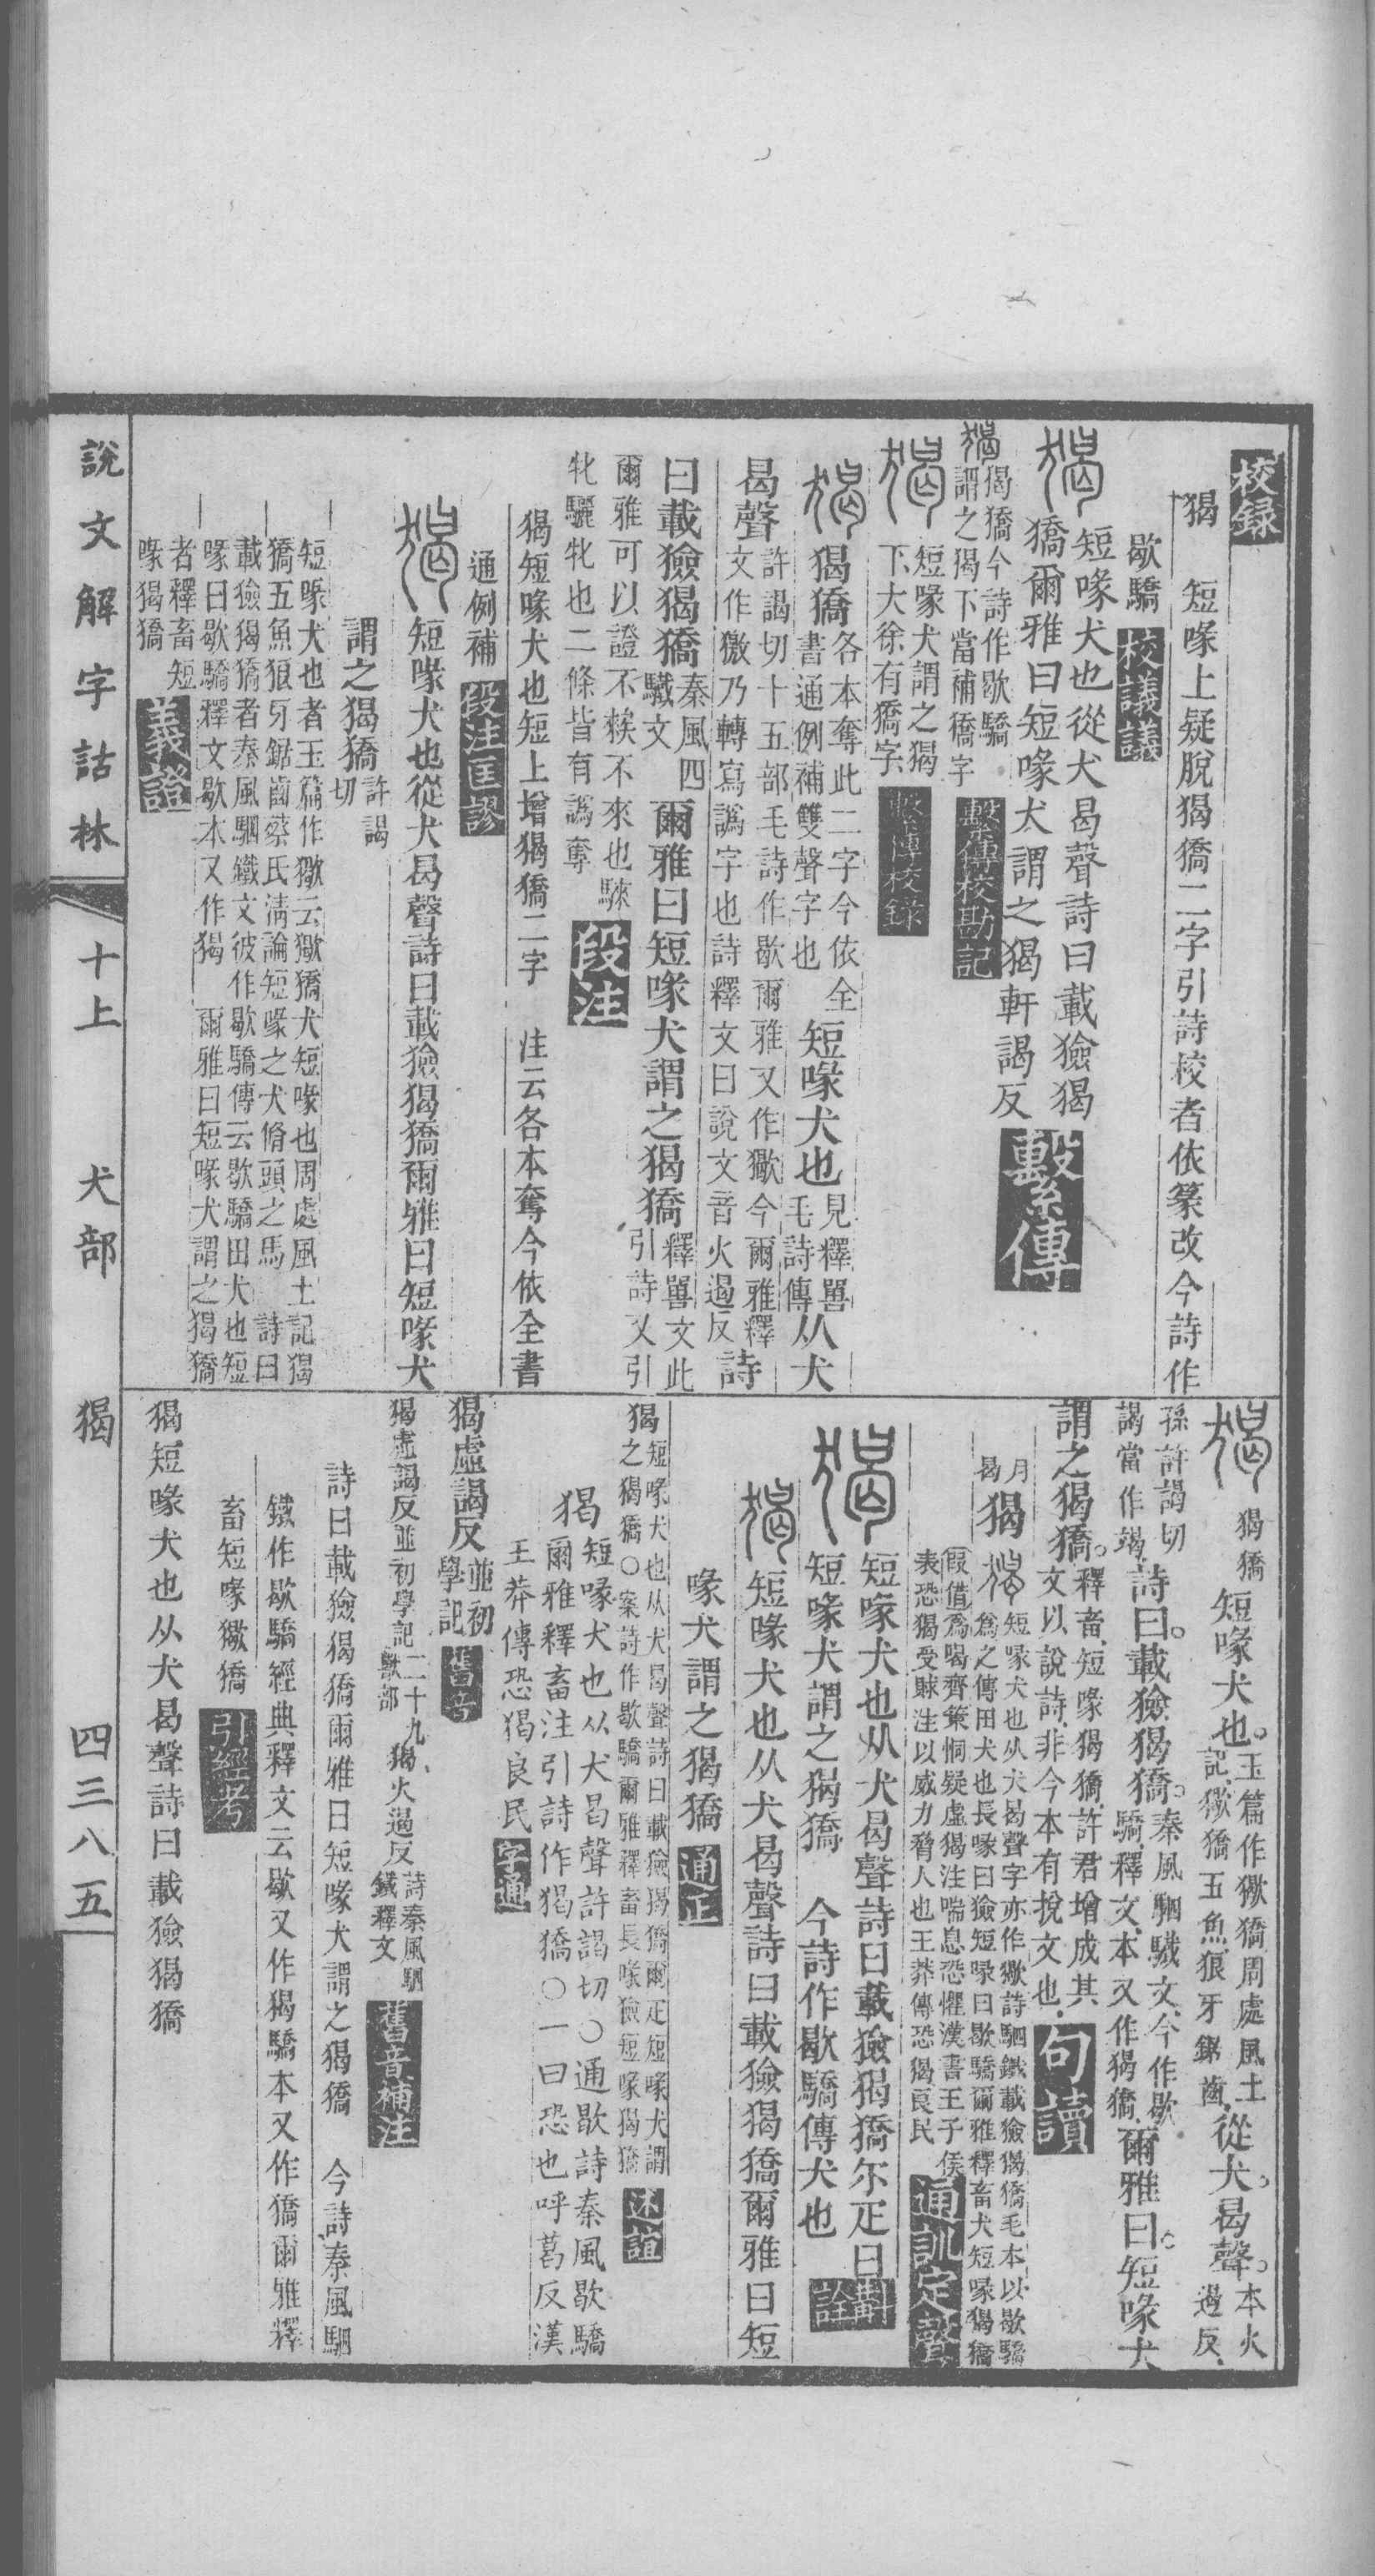 校録
猲　短喙上疑脫猲獢二字引詩校者依篆改今詩作
歇驕 校議議
猲 短喙犬也從犬曷聲詩曰載獫猲
獢爾雅曰短喙犬謂之猲軒謁反 繫傳
猲 猲獢今詩作歇驕
謂之猲下當補獢字 繫傳校勘記
猲 短喙犬謂之猲
下大徐有獢字 繫傳校錄
猲 猲獢 各本奪此二字今依全
書通例補雙聲字也 短喙犬也 見釋嘼
毛詩傳 从犬
曷聲 許謁切十五部毛詩作歇爾雅又作獥今爾雅釋
文作獥乃轉寫譌字也詩釋文曰說文音火遏反 詩
曰載獫猲獢 秦風四
驖文 爾雅曰短喙犬謂之猲獢 釋嘼文此
引詩又引
爾雅可以證不𥏳不來也騋
牝驪牝也二條皆有譌奪 段注
猲短喙犬也短上增猲獢二字　注云各本奪今依全書
通例補 段注匡謬
猲 短喙犬也從犬曷聲詩曰載獫猲獢爾雅曰短喙犬
謂之猲獢 許謁
切
短喙犬也者玉篇作獥云獥獢犬短喙也周處風土記猲
獢五魚狼牙鋸齒蔡氏清論短喙之犬脩頭之馬　詩曰
載獫猲獢者秦風駟鐵文彼作歇驕傳云歇驕田犬也短
喙曰歇驕釋文歇本又作猲　爾雅曰短喙犬謂之猲獢
者釋畜短
喙猲獢 義證
猲 猲獢 短喙犬也。 玉篇作獥獢周處風土
記獥獢五魚狼牙鋸齒 從犬。曷聲。 本火
遏反
孫許謁切
謁當作竭 詩曰。載獫猲獢。 秦風駟驖文今作歇
驕釋文本又作猲獢 爾雅曰。短喙犬
謂之猲獢。 釋畜短喙猲獢許君增成其
文以說詩非今本有捝文也 句讀
月
曷 猲 猲 短喙犬也从犬曷聲字亦作獥詩駟鐵載獫猲獢毛本以歇驕
爲之傳田犬也長喙曰獫短喙曰歇驕爾雅釋畜犬短喙猲獢
假借爲喝齊策恫疑虛猲注喘息恐懼漢書王子侯
表恐猲受賕注以威力脅人也王莽傳恐猲良民 通訓定聲
猲 短喙犬也从犬曷聲詩曰載獫猲獢尒疋曰
短喙犬謂之猲獢　今詩作歇驕傳犬也 斠詮
猲 短喙犬也从犬曷聲詩曰載獫猲獢爾雅曰短
喙犬謂之猲獢 通正
猲 短喙犬也从犬曷聲詩曰載獫猲獢爾疋短喙犬謂
之猲獢○案詩作歇驕爾雅釋畜長喙獫短喙猲獢 述誼
猲 短喙犬也从犬曷聲許謁切○通歇詩秦風歇驕
爾雅釋畜注引詩作猲獢○一曰恐也呼葛反漢
王莽傳恐猲良民 字通
猲虛謁反 並初
學記 舊音
猲虛謁反並初學記二十九
獸部　猲火遏反 詩秦風駟
鐵釋文 舊音補注
詩曰載獫猲獢爾雅曰短喙犬謂之猲獢　今詩秦風駟
鐵作歇驕經典釋文云歇又作猲驕本又作獢爾雅釋
畜短喙獥獢 引經考
猲短喙犬也从犬曷聲詩曰載獫猲獢
說文解字詁林　十上　犬部　猲　四三八五